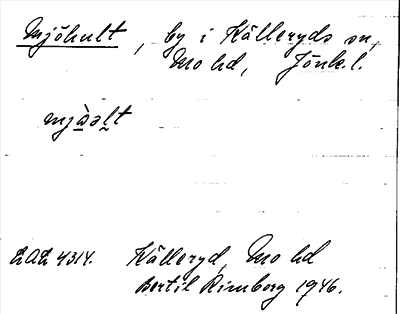 Mjöhult, by i Kålleryds sn,
Mo hd, Jönk.l.
mjə̀əlt
LAL 4314. Kålleryd, Mo hd
Bertil Rimborg 1946.